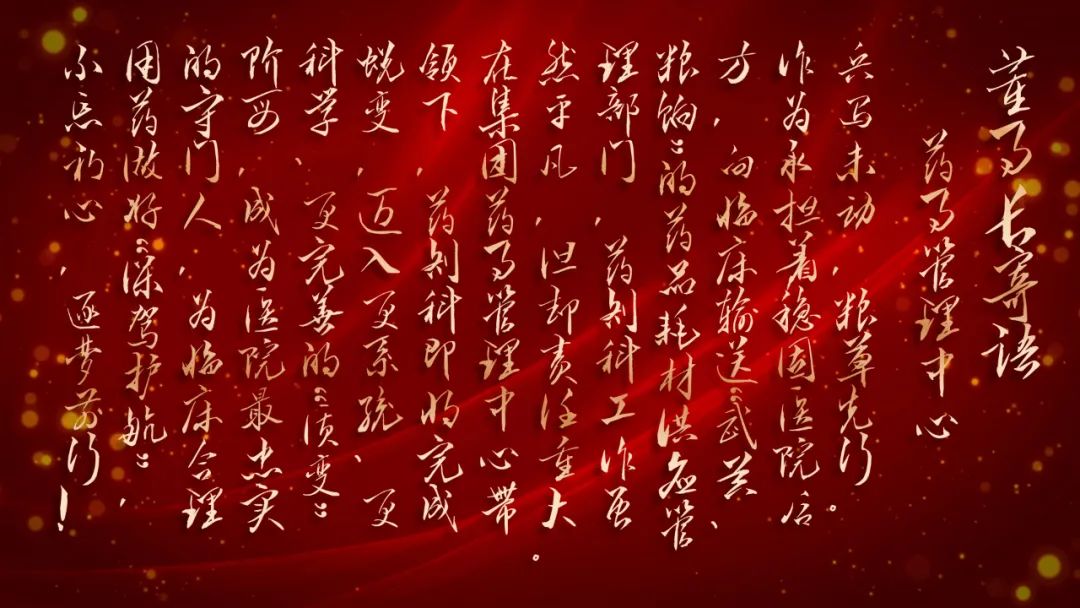 董事长寄语
药事管理中心
兵马未动，粮草先行。
作为承担着稳固医院后
方，向临床输送“武器、
粮饷”的药品耗材供应管
理部门，药剂科工作虽
然平凡，但却责任重大。
在集团药事管理中心带
领下，药剂科即将完成
蜕变，迈入更系统、更
科学、更完善的“质变”
阶段，成为医院最忠实
的守门人，为临床合理
用药做好“保驾护航”，
不忘初心，逐梦前行！